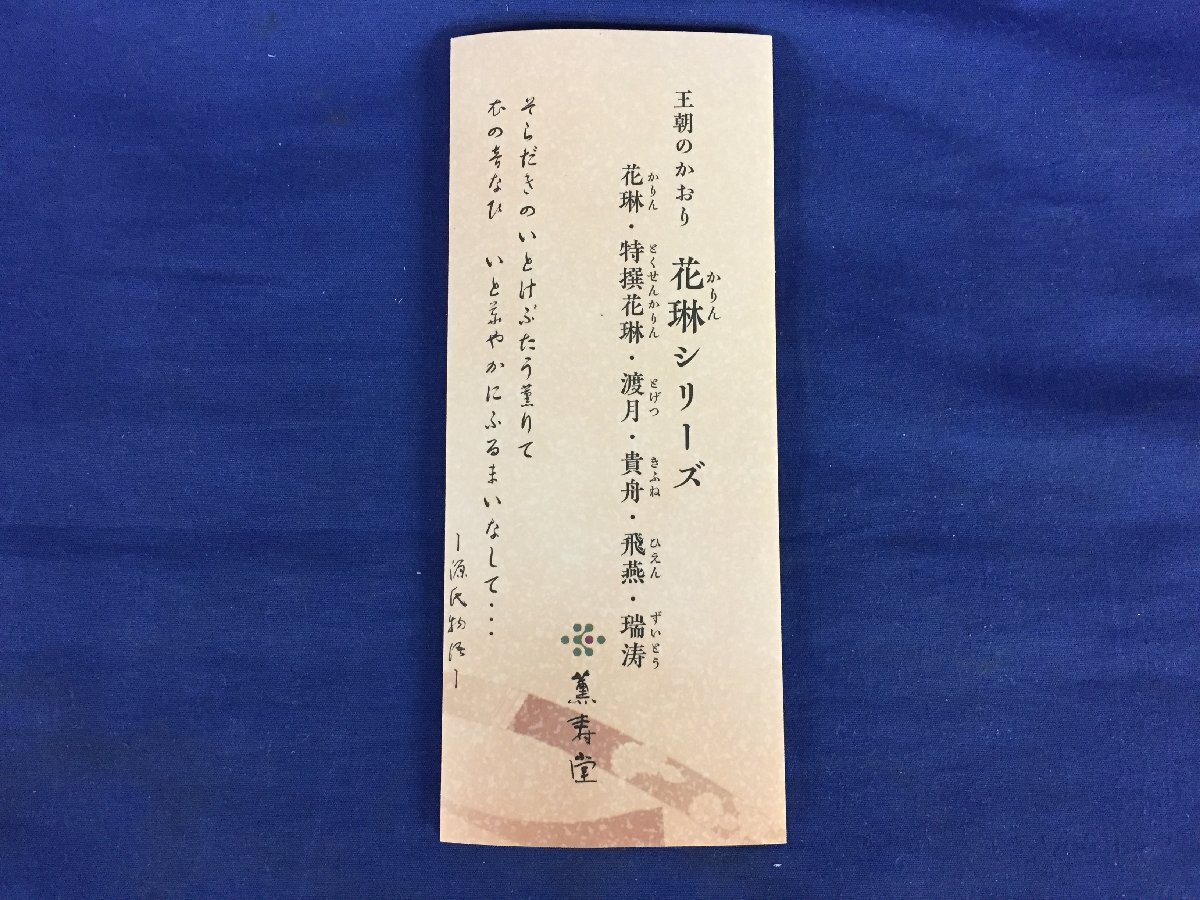 王朝のかおり 花琳シリーズ
かりん
花琳・特撰花琳・渡月・貴舟・飛燕・瑞涛
かりん とくせんかりん とげつ きふね ひえん ずいとう
そらだきのいとけぶたう薫りて
むの音なひ いと茉やかにふるまいなして・・・
ー源氏物語ー
薫寿堂